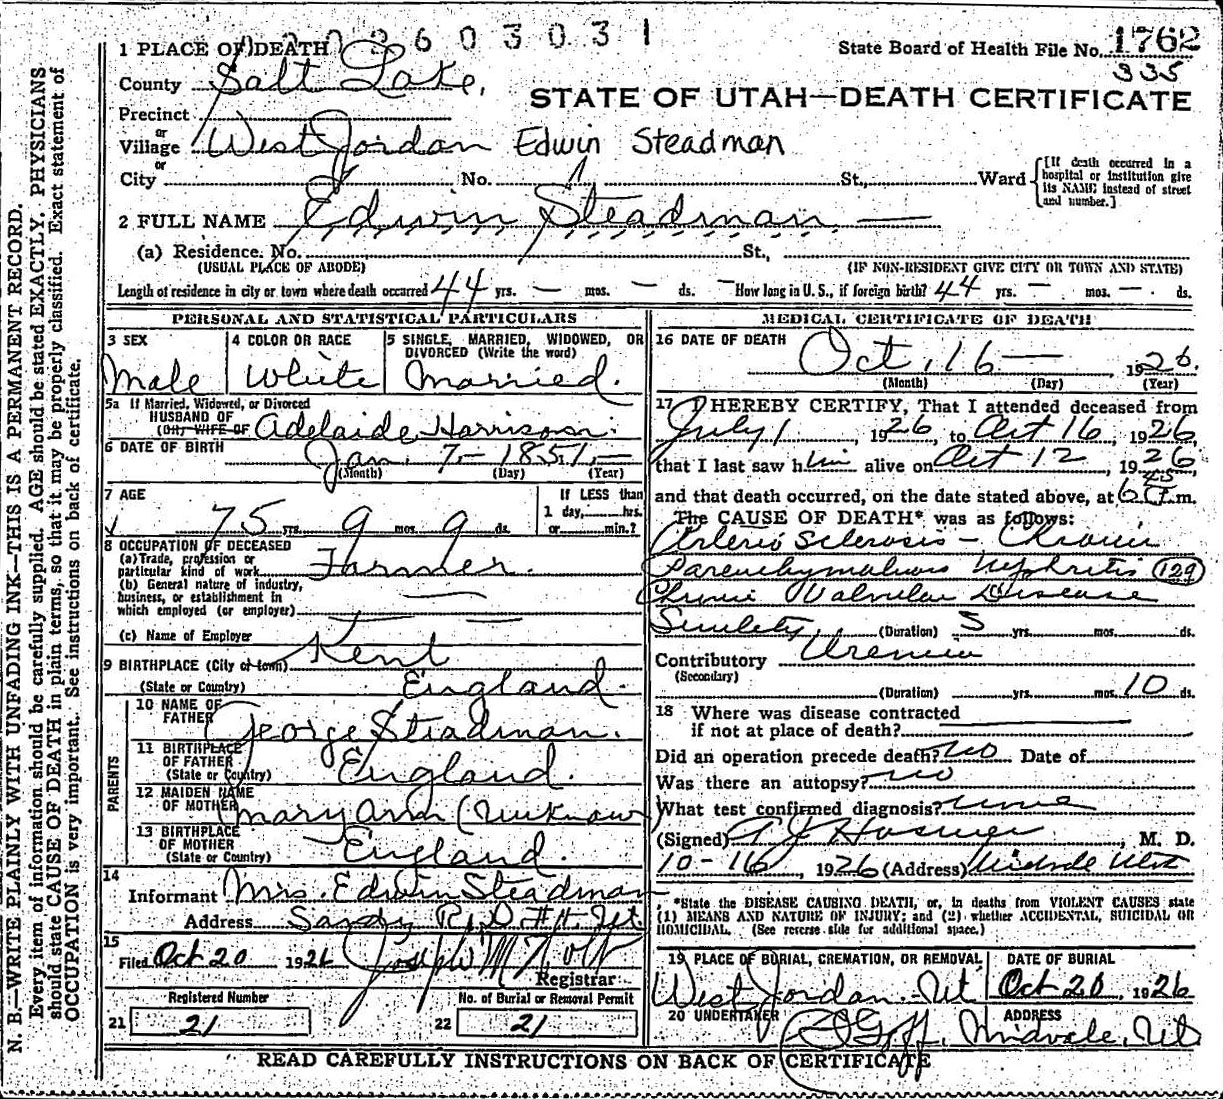 2603031
1 PLACE OF DEATH
State Board of Health File No. 1762
335
County Salt Lake.
STATE OF UTAH—DEATH CERTIFICATE
Precinct
or
Village West Jordan Edwin Steadman
or
City No. St., Ward
[If death occurred in a hospital or institution give its NAME instead of street and number.]
2 FULL NAME Edwin Steadman
(a) Residence. No. St.,
(USUAL PLACE OF ABODE) (IF NON-RESIDENT GIVE CITY OR TOWN AND STATE)
Length of residence in city or town where death occurred 44 yrs. — mos. — ds. How long in U. S., if foreign birth? 44 yrs. — mos. — ds.
PERSONAL AND STATISTICAL PARTICULARS
3 SEX
Male
4 COLOR OR RACE
White
5 SINGLE, MARRIED, WIDOWED, OR
DIVORCED (Write the word)
Married.
5a If Married, Widowed, or Divorced
HUSBAND OF
(OR) WIFE OF Adelaide Harrison.
6 DATE OF BIRTH
Jan. 7 - 1851 -
(Month) (Day) (Year)
7 AGE
75 yrs. 9 mos. 9 ds.
If LESS than
1 day, hrs.
or min.?
8 OCCUPATION OF DECEASED
(a) Trade, profession or
particular kind of work Farmer.
(b) General nature of industry,
business, or establishment in
which employed (or employer)
(c) Name of Employer
9 BIRTHPLACE (City or town) Kent
(State or Country) England.
PARENTS
10 NAME OF
FATHER George Steadman.
11 BIRTHPLACE
OF FATHER
(State or Country) England.
12 MAIDEN NAME
OF MOTHER Mary Ann (Unknown)
13 BIRTHPLACE
OF MOTHER
(State or Country) England.
14
Informant Mrs. Edwin Steadman
Address Sandy R. D. #1 Ut
15
Filed Oct 20 1926 Joseph M Holt
Registrar
Registered Number
21 21
No. of Burial or Removal Permit
22 21
MEDICAL CERTIFICATE OF DEATH
16 DATE OF DEATH
Oct, 16 — 1926.
(Month) (Day) (Year)
17 I HEREBY CERTIFY, That I attended deceased from
July 1, 1926, to Oct 16, 1926,
that I last saw him alive on Oct 12, 1926
and that death occurred, on the date stated above, at 6 45 P.m.
The CAUSE OF DEATH* was as follows:
Arterio Sclerosis - Chronic
Parenchymatous Nephritis (129)
Chronic Valvular Disease
(Duration) 5 yrs. mos. ds.
Contributory Uremia
(Secondary)
(Duration) yrs. mos. 10 ds.
18 Where was disease contracted
if not at place of death?
Did an operation precede death? no Date of
Was there an autopsy? no
What test confirmed diagnosis? urine
(Signed) Hosmer, M. D.
10-16, 1926 (Address) Midvale Utah
*State the DISEASE CAUSING DEATH, or, in deaths from VIOLENT CAUSES state
(1) MEANS AND NATURE OF INJURY; and (2) whether ACCIDENTAL, SUICIDAL OR
HOMICIDAL. (See reverse side for additional space.)
19 PLACE OF BURIAL, CREMATION, OR REMOVAL
West Jordan - Ut
DATE OF BURIAL
Oct 20, 1926
20 UNDERTAKER
Goff,
ADDRESS
Midvale, Ut
READ CAREFULLY INSTRUCTIONS ON BACK OF CERTIFICATE
N. B.—WRITE PLAINLY WITH UNFADING INK—THIS IS A PERMANENT RECORD.
Every item of information should be carefully supplied. AGE should be stated EXACTLY. PHYSICIANS
should state CAUSE OF DEATH in plain terms, so that it may be properly classified. Exact statement of
OCCUPATION is very important. See instructions on back of certificate.